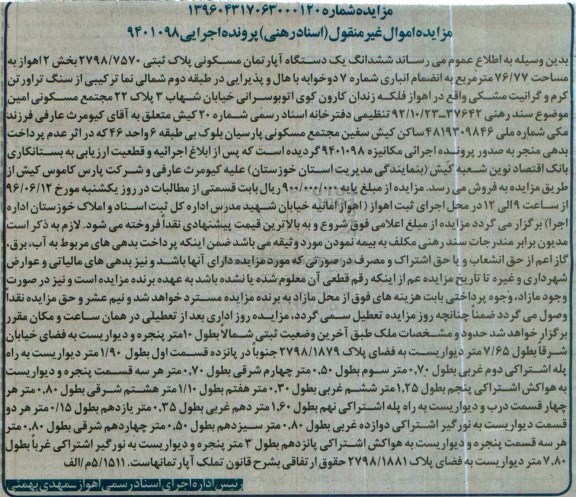 مزایده شماره ۱۳۹۶۰۴۳۱۷۰۶۳۰۰۰۱۲۰
مزایده اموال غیر منقول (اسناد رهنی) پرونده اجرایی ۹۴۰۱۰۹۸
بدین وسیله به اطلاع عموم می رساند ششدانگ یک دستگاه آپارتمان مسکونی پلاک ثبتی ۲۷۹۸/۷۵۷۰ بخش ۲ اهواز به
مساحت ۷۶/۷۷ مترمربع به انضمام انباری شماره ۷ دوخوابه با هال و پذیرایی در طبقه دوم شمالی نما ترکیبی از سنگ تراورتن
کرم و گرانیت مشکی واقع در اهواز فلکه زندان کارون کوی اتوبوسرانی خیابان شهاب ۳ پلاک ۲۲ مجتمع مسکونی امین
موضوع سند رهنی ۳۷۶۴۲-۹۲/۱۰/۲۳ تنظیمی دفترخانه اسناد رسمی شماره ۲۰ کیش متعلق به آقای کیومرث عارفی فرزند
مکی شماره ملی ۴۸۱۹۳۰۹۸۴۶ ساکن کیش سفین مجتمع مسکونی پارسیان بلوک بی طبقه ۶ واحد ۴۶ که در اثر عدم پرداخت
بدهی منجر به صدور پرونده اجرائی مکانیزه ۹۴۰۱۰۹۸ گردیده است که پس از ابلاغ اجرائیه و قطعیت ارزیابی به بستانکاری
بانک اقتصاد نوین شعبه کیش (بنمایندگی مدیریت استان خوزستان) علیه کیومرث عارفی و شرکت پارس کاموس کیش از
طریق مزایده به فروش می رسد. مزایده از مبلغ پایه ۹۰۰/۰۰۰/۰۰۰ ریال بابت قسمتی از مطالبات در روز یکشنبه مورخ ۹۶/۰۶/۱۲
از ساعت ۹ الی ۱۲ در محل اجرای ثبت اهواز (اهواز امانیه خیابان شهید مدرس اداره کل ثبت اسناد و املاک خوزستان اداره
اجرا) برگزار می گردد مزایده از مبلغ اعلامی فوق شروع و به بالاترین قیمت پیشنهادی نقداً فروخته می شود. لازم به ذکر است
مدیون برابر مندرجات سند رهنی مکلف به بیمه نمودن مورد وثیقه می باشد ضمن اینکه پرداخت بدهی های مربوط به آب، برق،
گاز اعم از حق انشعاب و یا حق اشتراک و مصرف در صورتی که مورد مزایده دارای آنها باشد و نیز بدهی های مالیاتی و عوارض
شهرداری و غیره تا تاریخ مزایده عم از اینکه رقم قطعی آن معلوم شده یا نشده باشد به عهده برنده مزایده است و نیز در صورت
وجود مازاد، وجوه پرداختی بابت هزینه های فوق از محل مازاد به برنده مزایده مسترد خواهد شد و نیم عشر و حق مزایده نقداً
وصول می گردد ضمناً چنانچه روز مزایده تعطیل سمی گردد، مزایده روز اداری بعد از تعطیلی در همان ساعت و مکان مقرر
برگزار خواهد شد حدود و مشخصات ملک طبق آخرین وضعیت ثبتی شمالاً بطول ۱۰ متر پنجره و دیواریست به فضای خیابان
شرقاً بطول ۷/۶۵ متر دیواریست به فضای پلاک ۲۷۹۸/۱۸۷۹ جنوبا در پانزده قسمت اول بطول ۱/۹۰ متر دیواریست به راه
پله اشتراکی دوم غربی بطول ۰,۷۰ متر سوم بطول ۰,۵۰ متر چهارم شرقی بطول ۰,۷۰ متر هر سه قسمت پنجره و دیواریست
به هواکش اشتراکی پنجم بطول ۱,۲۵ متر ششم غربی بطول ۰,۳۰ متر هفتم بطول ۱/۱۰ متر هشتم شرقی بطول ۰,۸۰ متر هر
چهار قسمت درب و دیواریست به راه پله اشتراکی نهم بطول ۱,۶۰ متر دهم غربی بطول ۰,۳۵ متر یازدهم بطول ۰/۱۵ متر هر دو
قسمت دیواریست به نورگیر اشتراکی دوازده غربی بطول ۰,۸۰ متر سیزدهم بطول ۰,۵۰ متر چهاردهم شرقی بطول ۰,۸۰ متر
هر سه قسمت پنجره و دیواریست به هواکش اشتراکی پانزدهم بطول ۳ متر پنجره و دیواریست به نورگیر اشتراکی غرباً بطول
۷,۸۰ متر دیواریست به فضای پلاک ۲۷۹۸/۱۸۸۱ حقوق ارتفاقی بشرح قانون تملک آپارتمانهاست. ۵/۱۵۱۱م/الف
رییس اداره اجرای اسناد رسمی اهواز ـ مهدی بهمئی